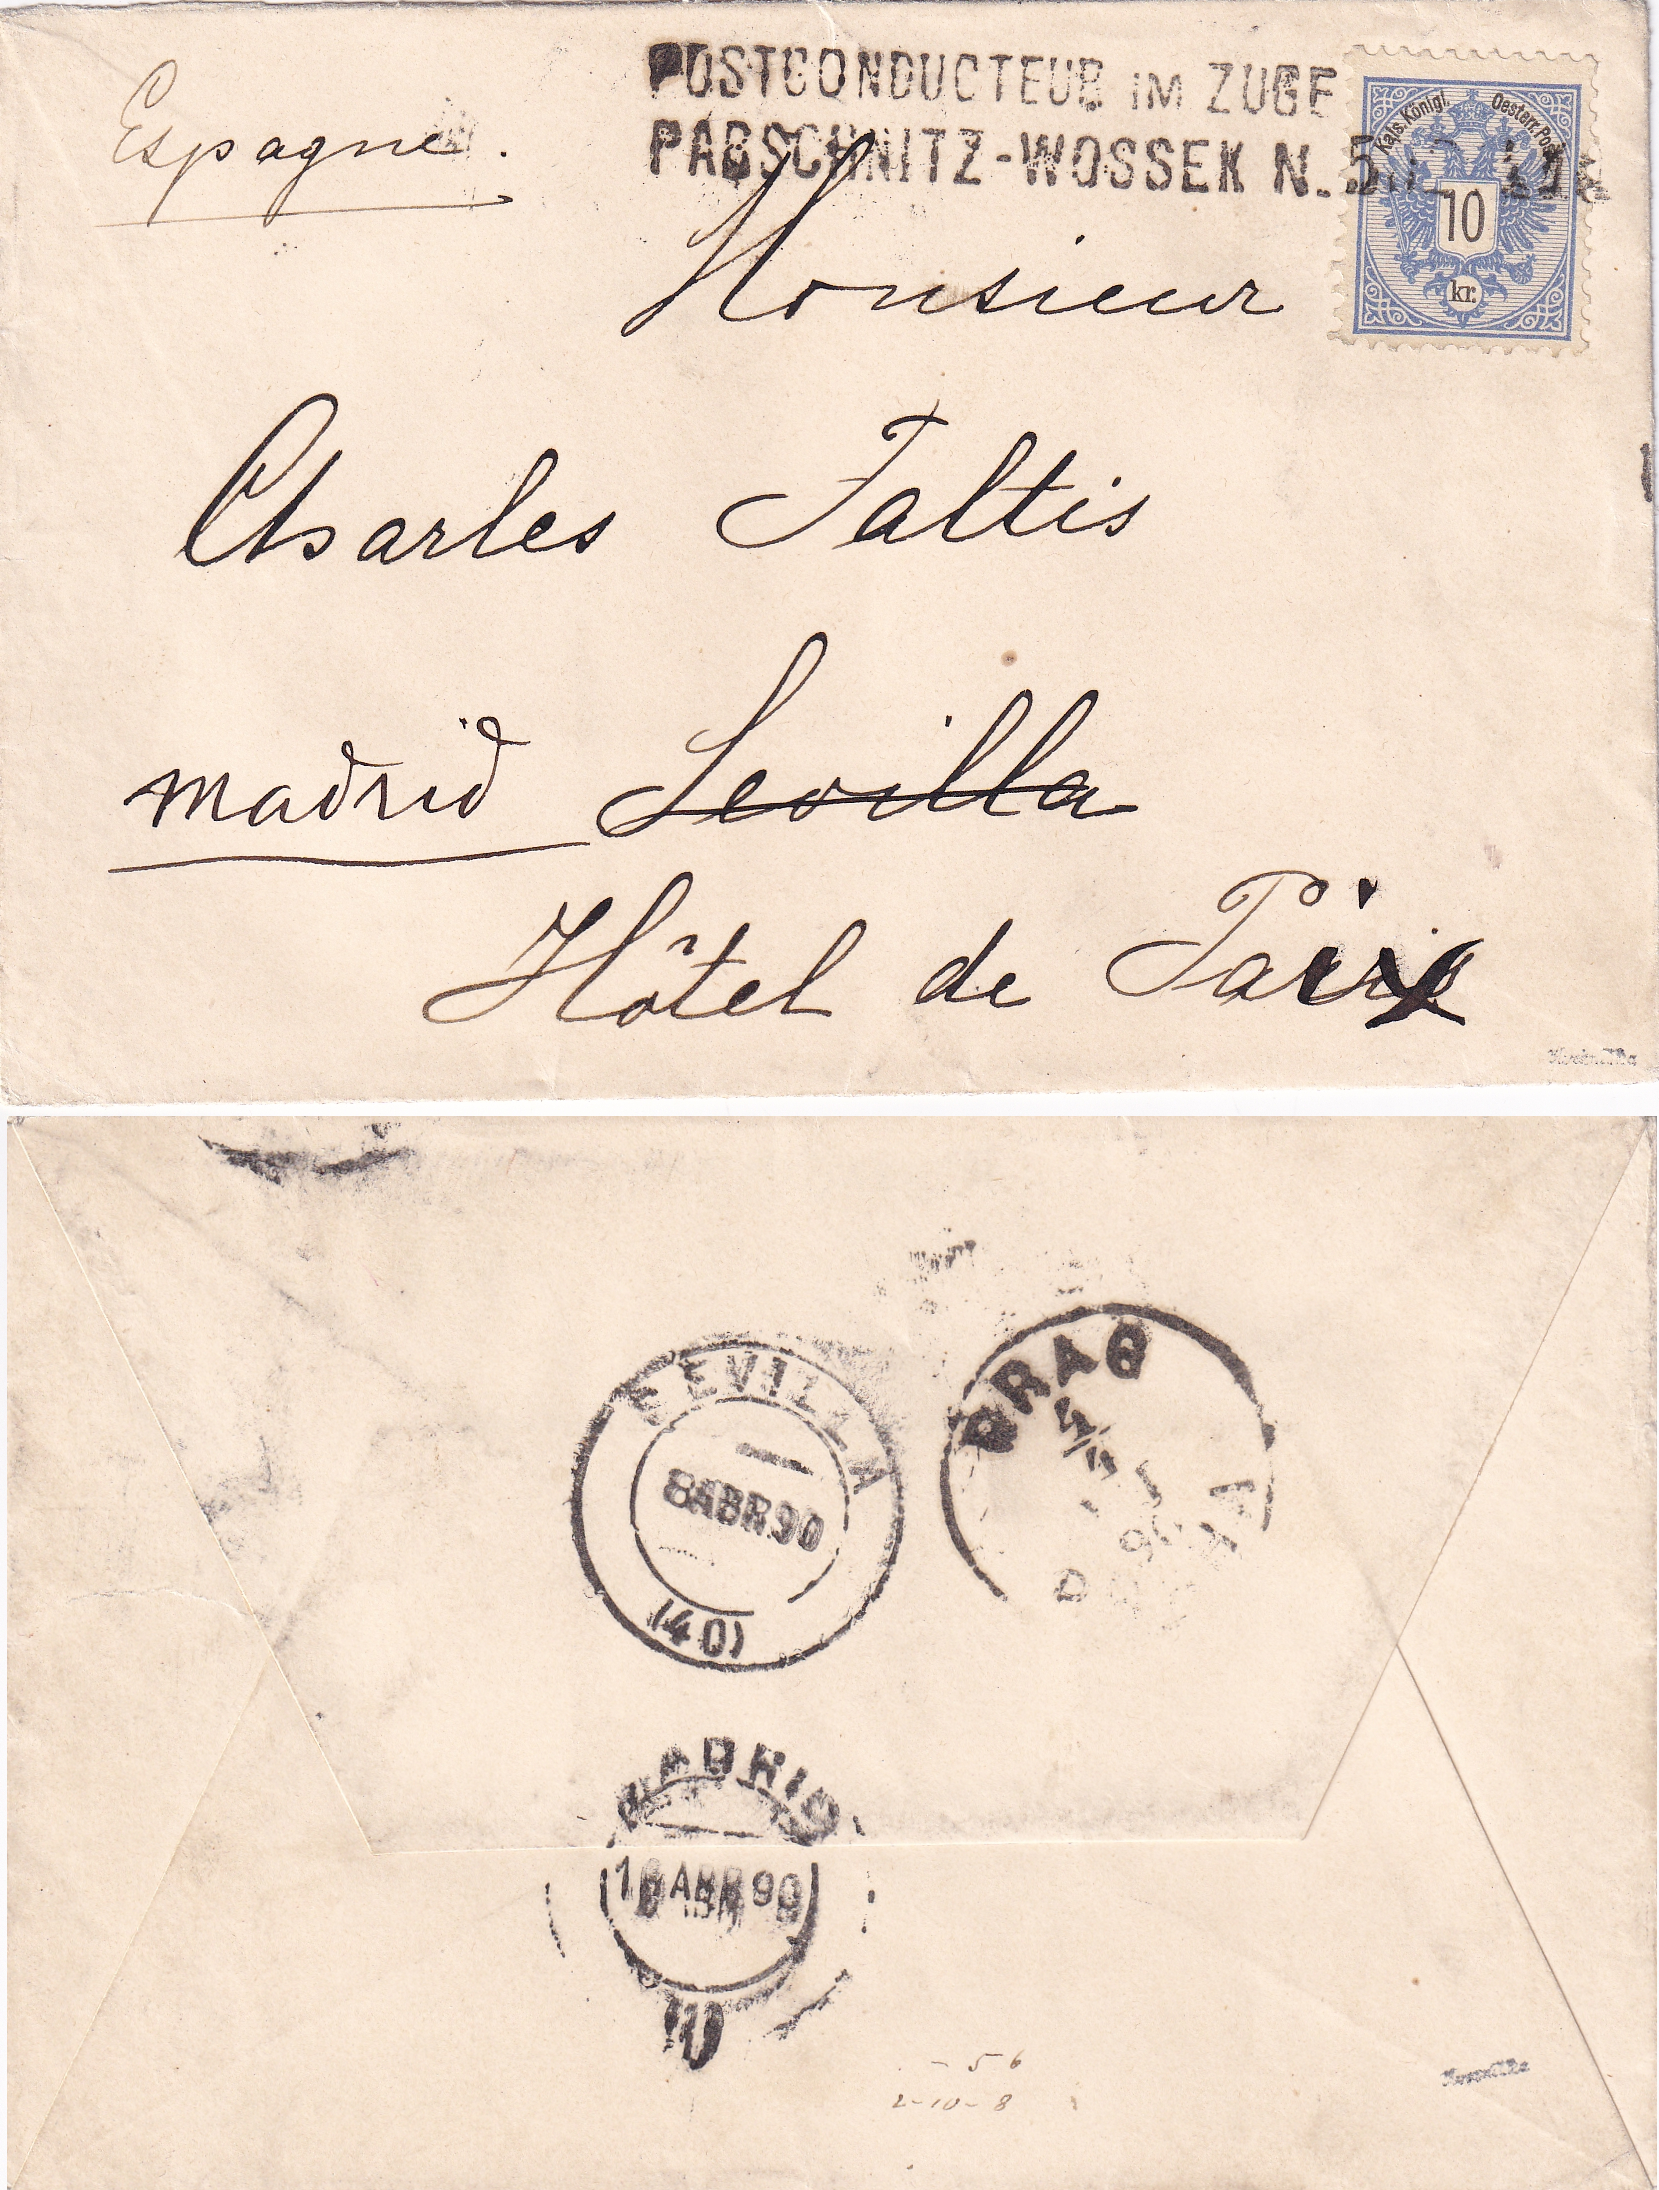 Espagne.
POSTCONDUCTEUR IM ZUGE
PARSCHNITZ-WOSSEK N.
Kais. Königl. Oesterr. Post
10
kr.
Monsieur
Charles Faltis
Madrid Sevilla
Hôtel de Paix
SEVILLA
8 ABR 90
(40)
PRAG
4/4
90
PRAHA
MADRID
ABR 90
- 56
2-10-8